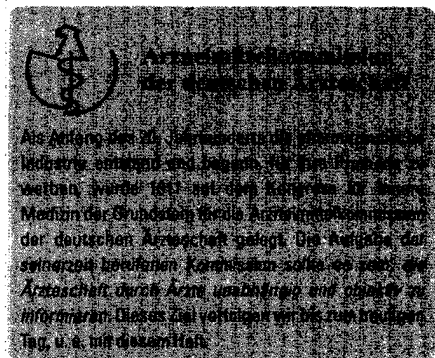 Arzneimittelkommission
der deutschen Ärzteschaft
Als Anfang des 20. Jahrhunderts die pharmazeutische
Industrie entstand und begann, für ihre Produkte zu
werben, wurde 1911 auf dem Kongress für Innere
Medizin der Grundstein für die Arzneimittelkommission
der deutschen Ärzteschaft gelegt. Die Aufgabe der
seinerzeit berufenen Kommission sollte es sein, die
Ärzteschaft durch Ärzte unabhängig und objektiv zu
informieren. Dieses Ziel verfolgen wir bis zum heutigen
Tag, u. a. mit diesem Heft.